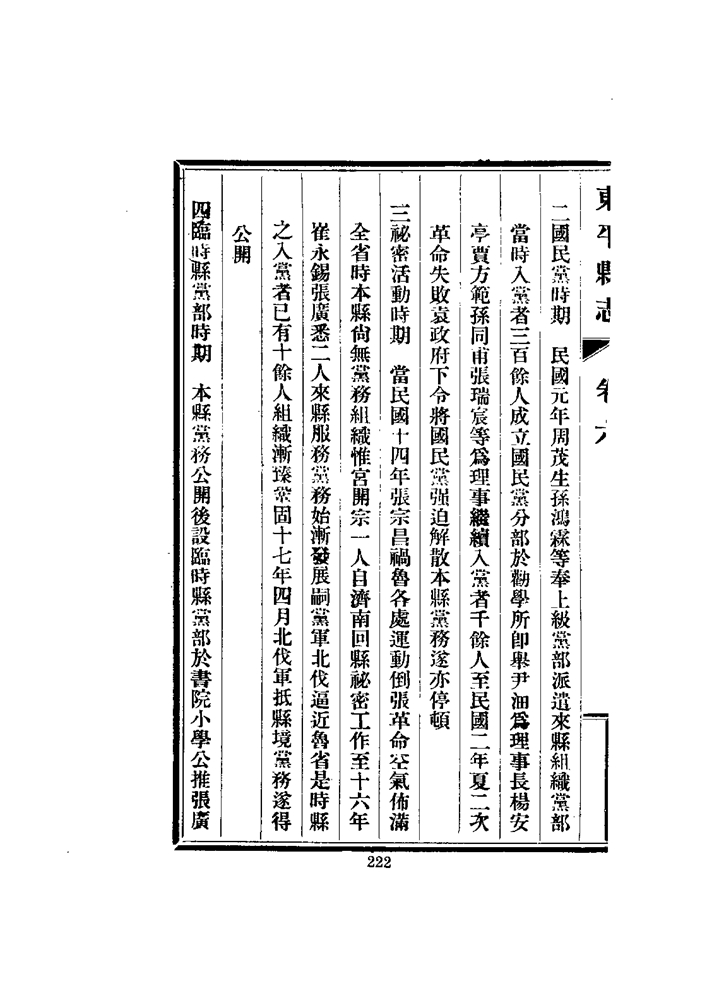 東平縣志 卷六
二國民黨時期 民國元年周茂生孫鴻霖等奉上級黨部派遣來縣組織黨部
當時入黨者三百餘人成立國民黨分部於勸學所卽舉尹湎爲理事長楊安
亭賈方範孫同甫張瑞宸等爲理事繼續入黨者千餘人至民國二年夏二次
革命失敗袁政府下令將國民黨强迫解散本縣黨務遂亦停頓
三祕密活動時期 當民國十四年張宗昌禍魯各處運動倒張革命空氣佈滿
全省時本縣尙無黨務組織惟宮開宗一人自濟南回縣祕密工作至十六年
崔永錫張廣悉二人來縣服務黨務始漸發展嗣黨軍北伐逼近魯省是時縣
之入黨者已有十餘人組織漸臻鞏固十七年四月北伐軍抵縣境黨務遂得
公開
四臨時縣黨部時期 本縣黨務公開後設臨時縣黨部於書院小學公推張廣
222